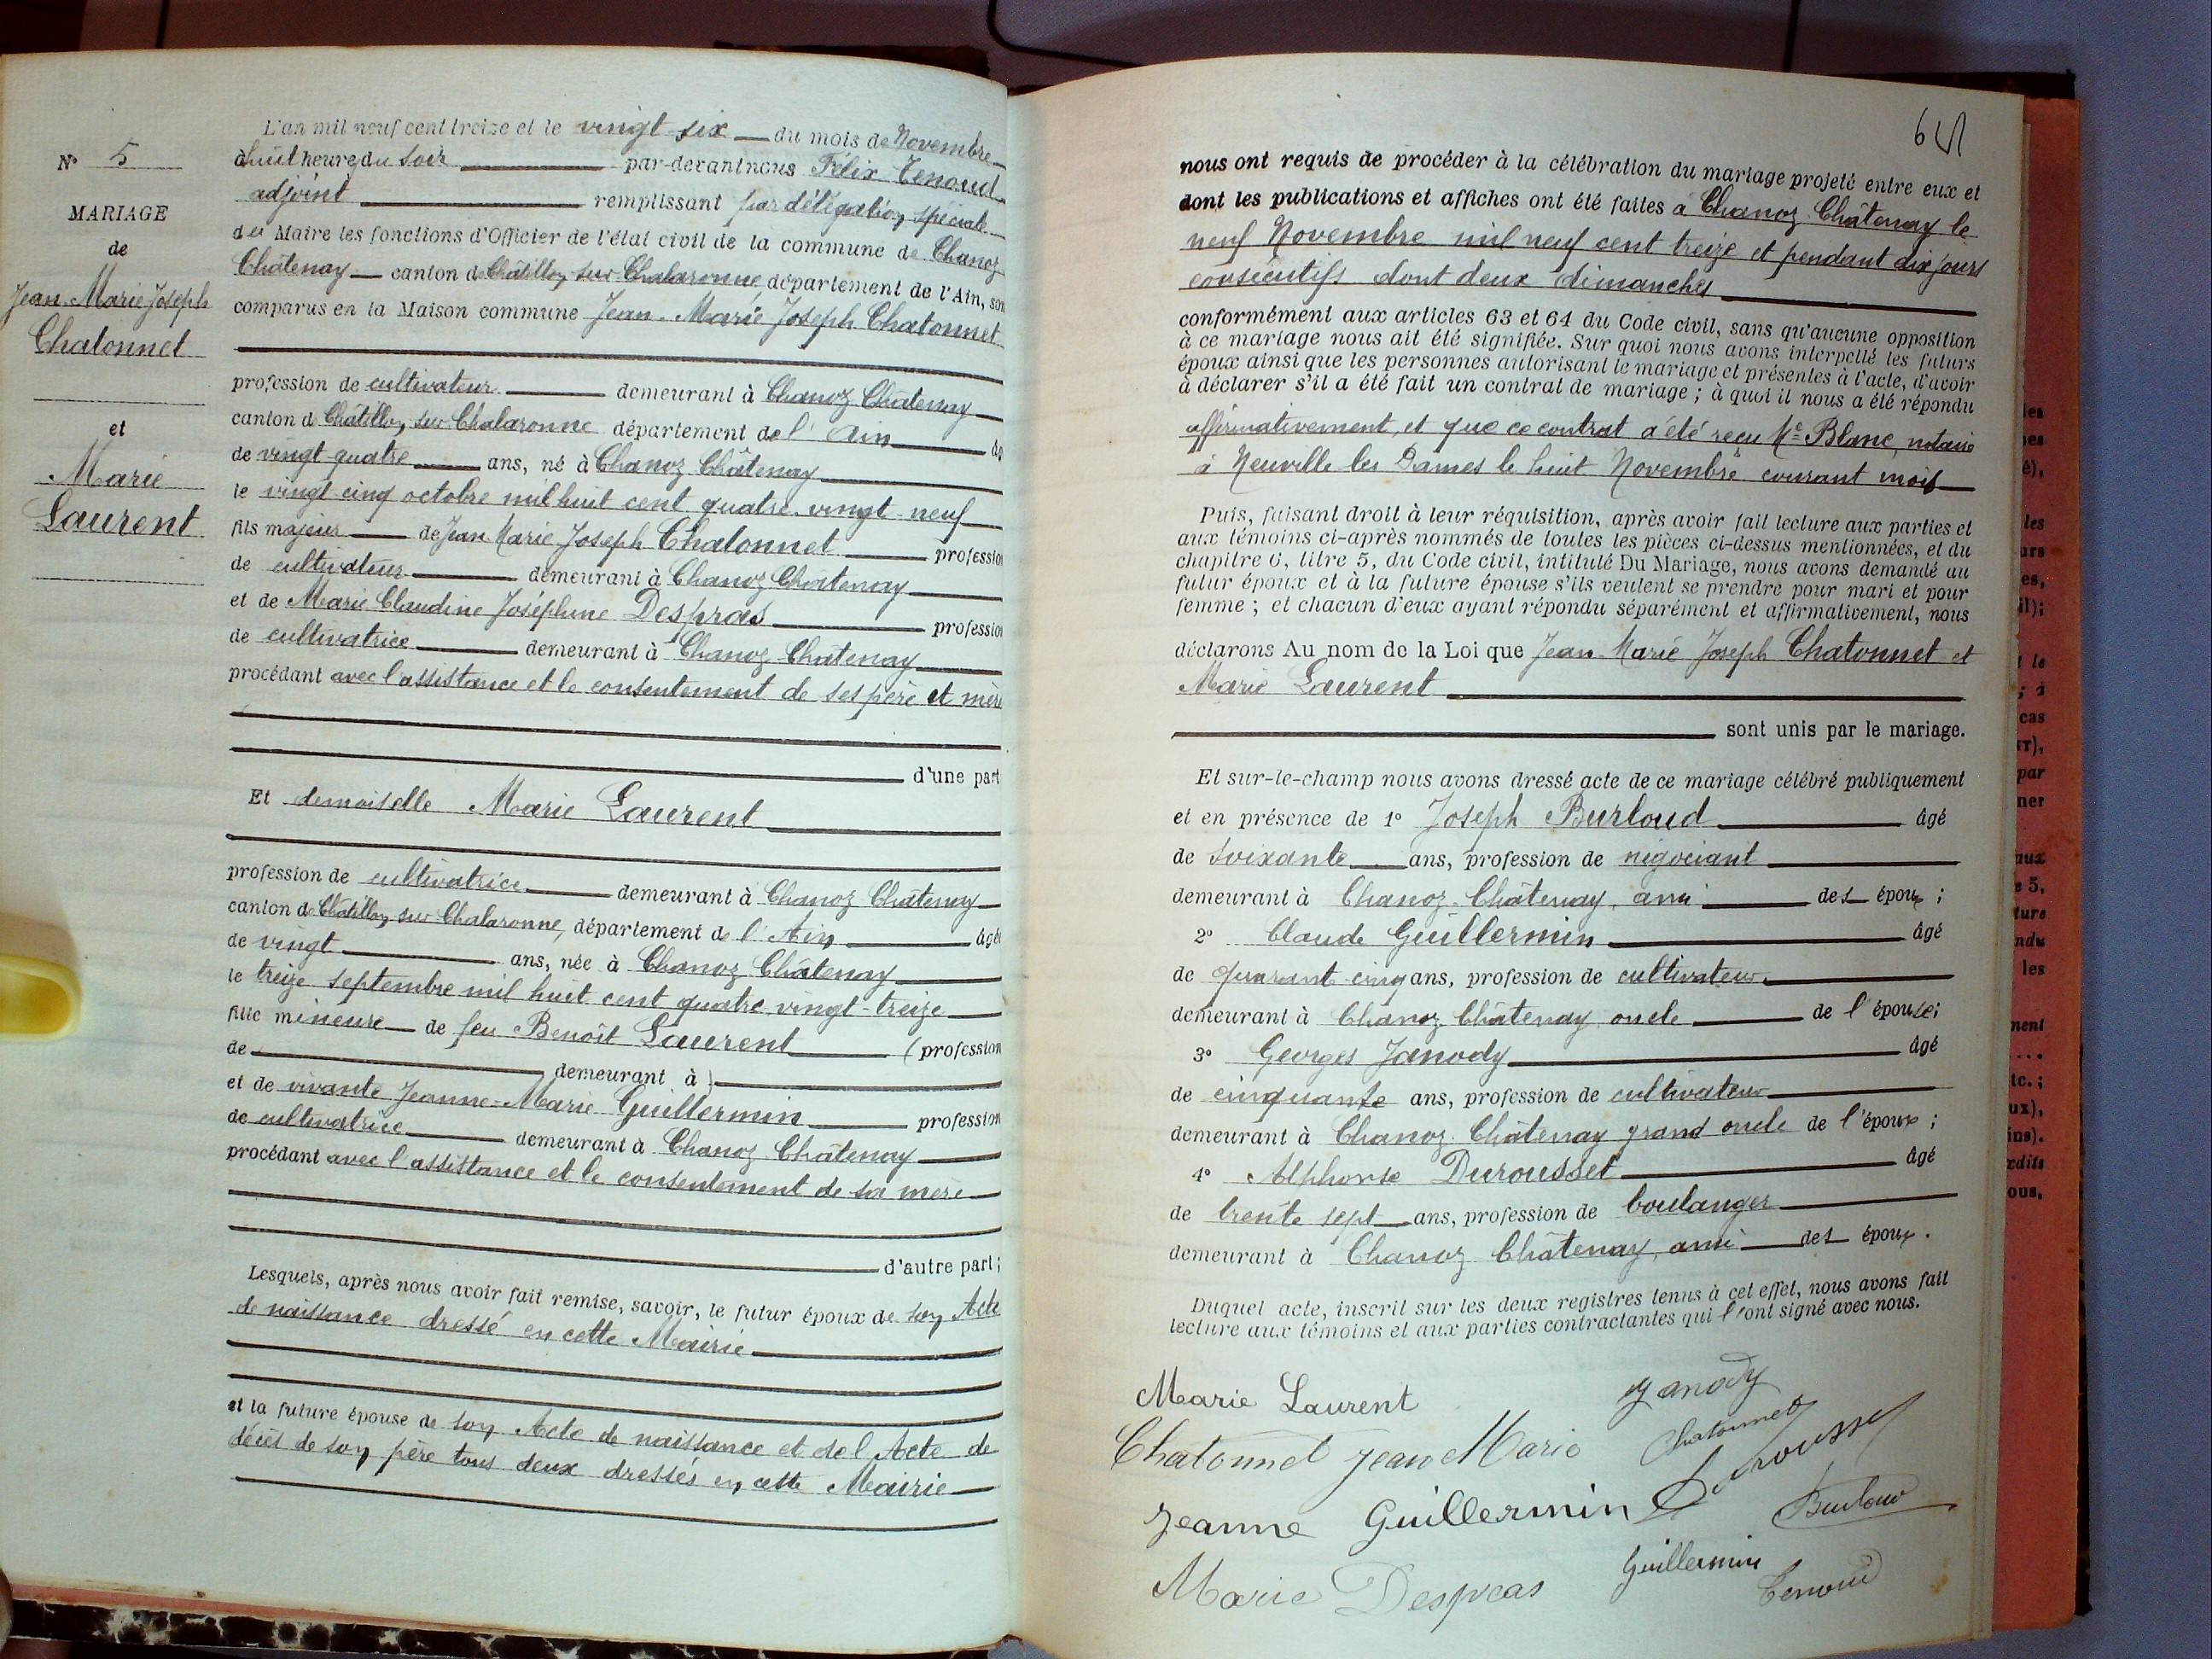 N° 5
MARIAGE
de
Jean Marie Joseph
Chatonnet
et
Marie
Laurent
L'an mil neuf cent treize et le vingt six du mois de Novembre
à huit heures du soir par-devant nous Félix Tenoud
adjoint remplissant par délégation spéciale
du Maire les fonctions d'Officier de l'état civil de la commune de Chanoz
Châtenay canton de Châtillon sur Chalaronne, département de l'Ain, son
comparus en la Maison commune Jean-Marie Joseph Chatonnet
profession de cultivateur demeurant à Chanoz Châtenay
canton de Châtillon sur Chalaronne département de l'Ain âg
de vingt-quatre ans, né à Chanoz Châtenay
le vingt cinq octobre mil huit cent quatre-vingt-neuf
fils majeur de Jean Marie Joseph Chatonnet profession
de cultivateur demeurant à Chanoz Châtenay
et de Marie Claudine Joséphine Despras profession
de cultivatrice demeurant à Chanoz Châtenay
procédant avec l'assistance et le consentement de ses père et mère
d'une part
Et demoiselle Marie Laurent
profession de cultivatrice demeurant à Chanoz Châtenay
canton de Châtillon sur Chalaronne, département de l'Ain âgé
de vingt ans, née à Chanoz Châtenay
le treize septembre mil huit cent quatre vingt-treize
fille mineure de feu Benoît Laurent (profession
de demeurant à )
et de vivante Jeanne-Marie Guillermin profession
de cultivatrice demeurant à Chanoz Châtenay
procédant avec l'assistance et le consentement de sa mère
d'autre part;
Lesquels, après nous avoir fait remise, savoir, le futur époux de son Acte
de naissance dressé en cette Mairie
et la future épouse de son Acte de naissance et de l'Acte de
décès de son père tous deux dressés en cette Mairie
65
nous ont requis de procéder à la célébration du mariage projeté entre eux et
dont les publications et affiches ont été faites à Chanoz Châtenay le
neuf Novembre mil neuf cent treize et pendant dix jours
consécutifs dont deux dimanches
conformément aux articles 63 et 64 du Code civil, sans qu'aucune opposition
à ce mariage nous ait été signifiée. Sur quoi nous avons interpellé les futurs
époux ainsi que les personnes autorisant le mariage et présentes à l'acte, d'avoir
à déclarer s'il a été fait un contrat de mariage ; à quoi il nous a été répondu
affirmativement, et que ce contrat a été reçu Me Blanc, notaire
à Neuville les Dames le huit Novembre courant mois
Puis, faisant droit à leur réquisition, après avoir fait lecture aux parties et
aux témoins ci-après nommés de toutes les pièces ci-dessus mentionnées, et du
chapitre 6, titre 5, du Code civil, intitulé Du Mariage, nous avons demandé au
futur époux et à la future épouse s'ils veulent se prendre pour mari et pour
femme ; et chacun d'eux ayant répondu séparément et affirmativement, nous
déclarons Au nom de la Loi que Jean-Marie Joseph Chatonnet et
Marie Laurent
sont unis par le mariage.
Et sur-le-champ nous avons dressé acte de ce mariage célébré publiquement
et en présence de 1° Joseph Burloud âgé
de soixante ans, profession de négociant
demeurant à Chanoz-Châtenay, ami des époux ;
2° Claude Guillermin âgé
de quarant cinq ans, profession de cultivateur
demeurant à Chanoz Châtenay oncle de l'épouse;
3° Georges Janody âgé
de cinquante ans, profession de cultivateur
demeurant à Chanoz Châtenay grand oncle de l'époux ;
4° Alphonse Durousset âgé
de trente sept ans, profession de boulanger
demeurant à Chanoz Châtenay, ami des époux.
Duquel acte, inscrit sur les deux registres tenus à cet effet, nous avons fait
lecture aux témoins et aux parties contractantes qui l'ont signé avec nous.
Marie Laurent Janody
Chatonnet Jean Marie Chatonnet
Durousset
Jeanne Guillermin Burloud
Guillermin
Marie Despras Tenoud